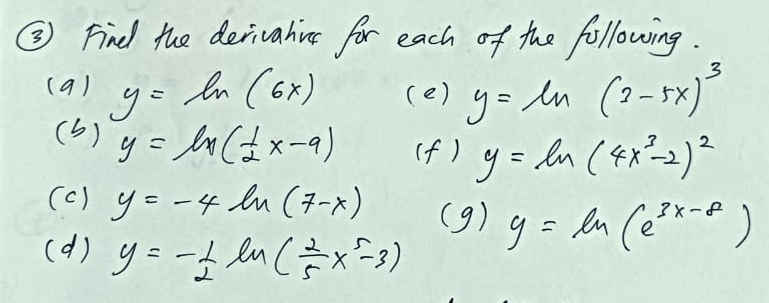 ③ Find the derivative for each of the following.
(a) y = ln (6x)
(b) y = ln(½x-9)
(c) y = -4 ln (7-x)
(d) y = -½ ln(⅖x⁵-3)
(e) y = ln (2-5x)³
(f) y = ln (4x³-2)²
(g) y = ln (e³ˣ⁻⁸)